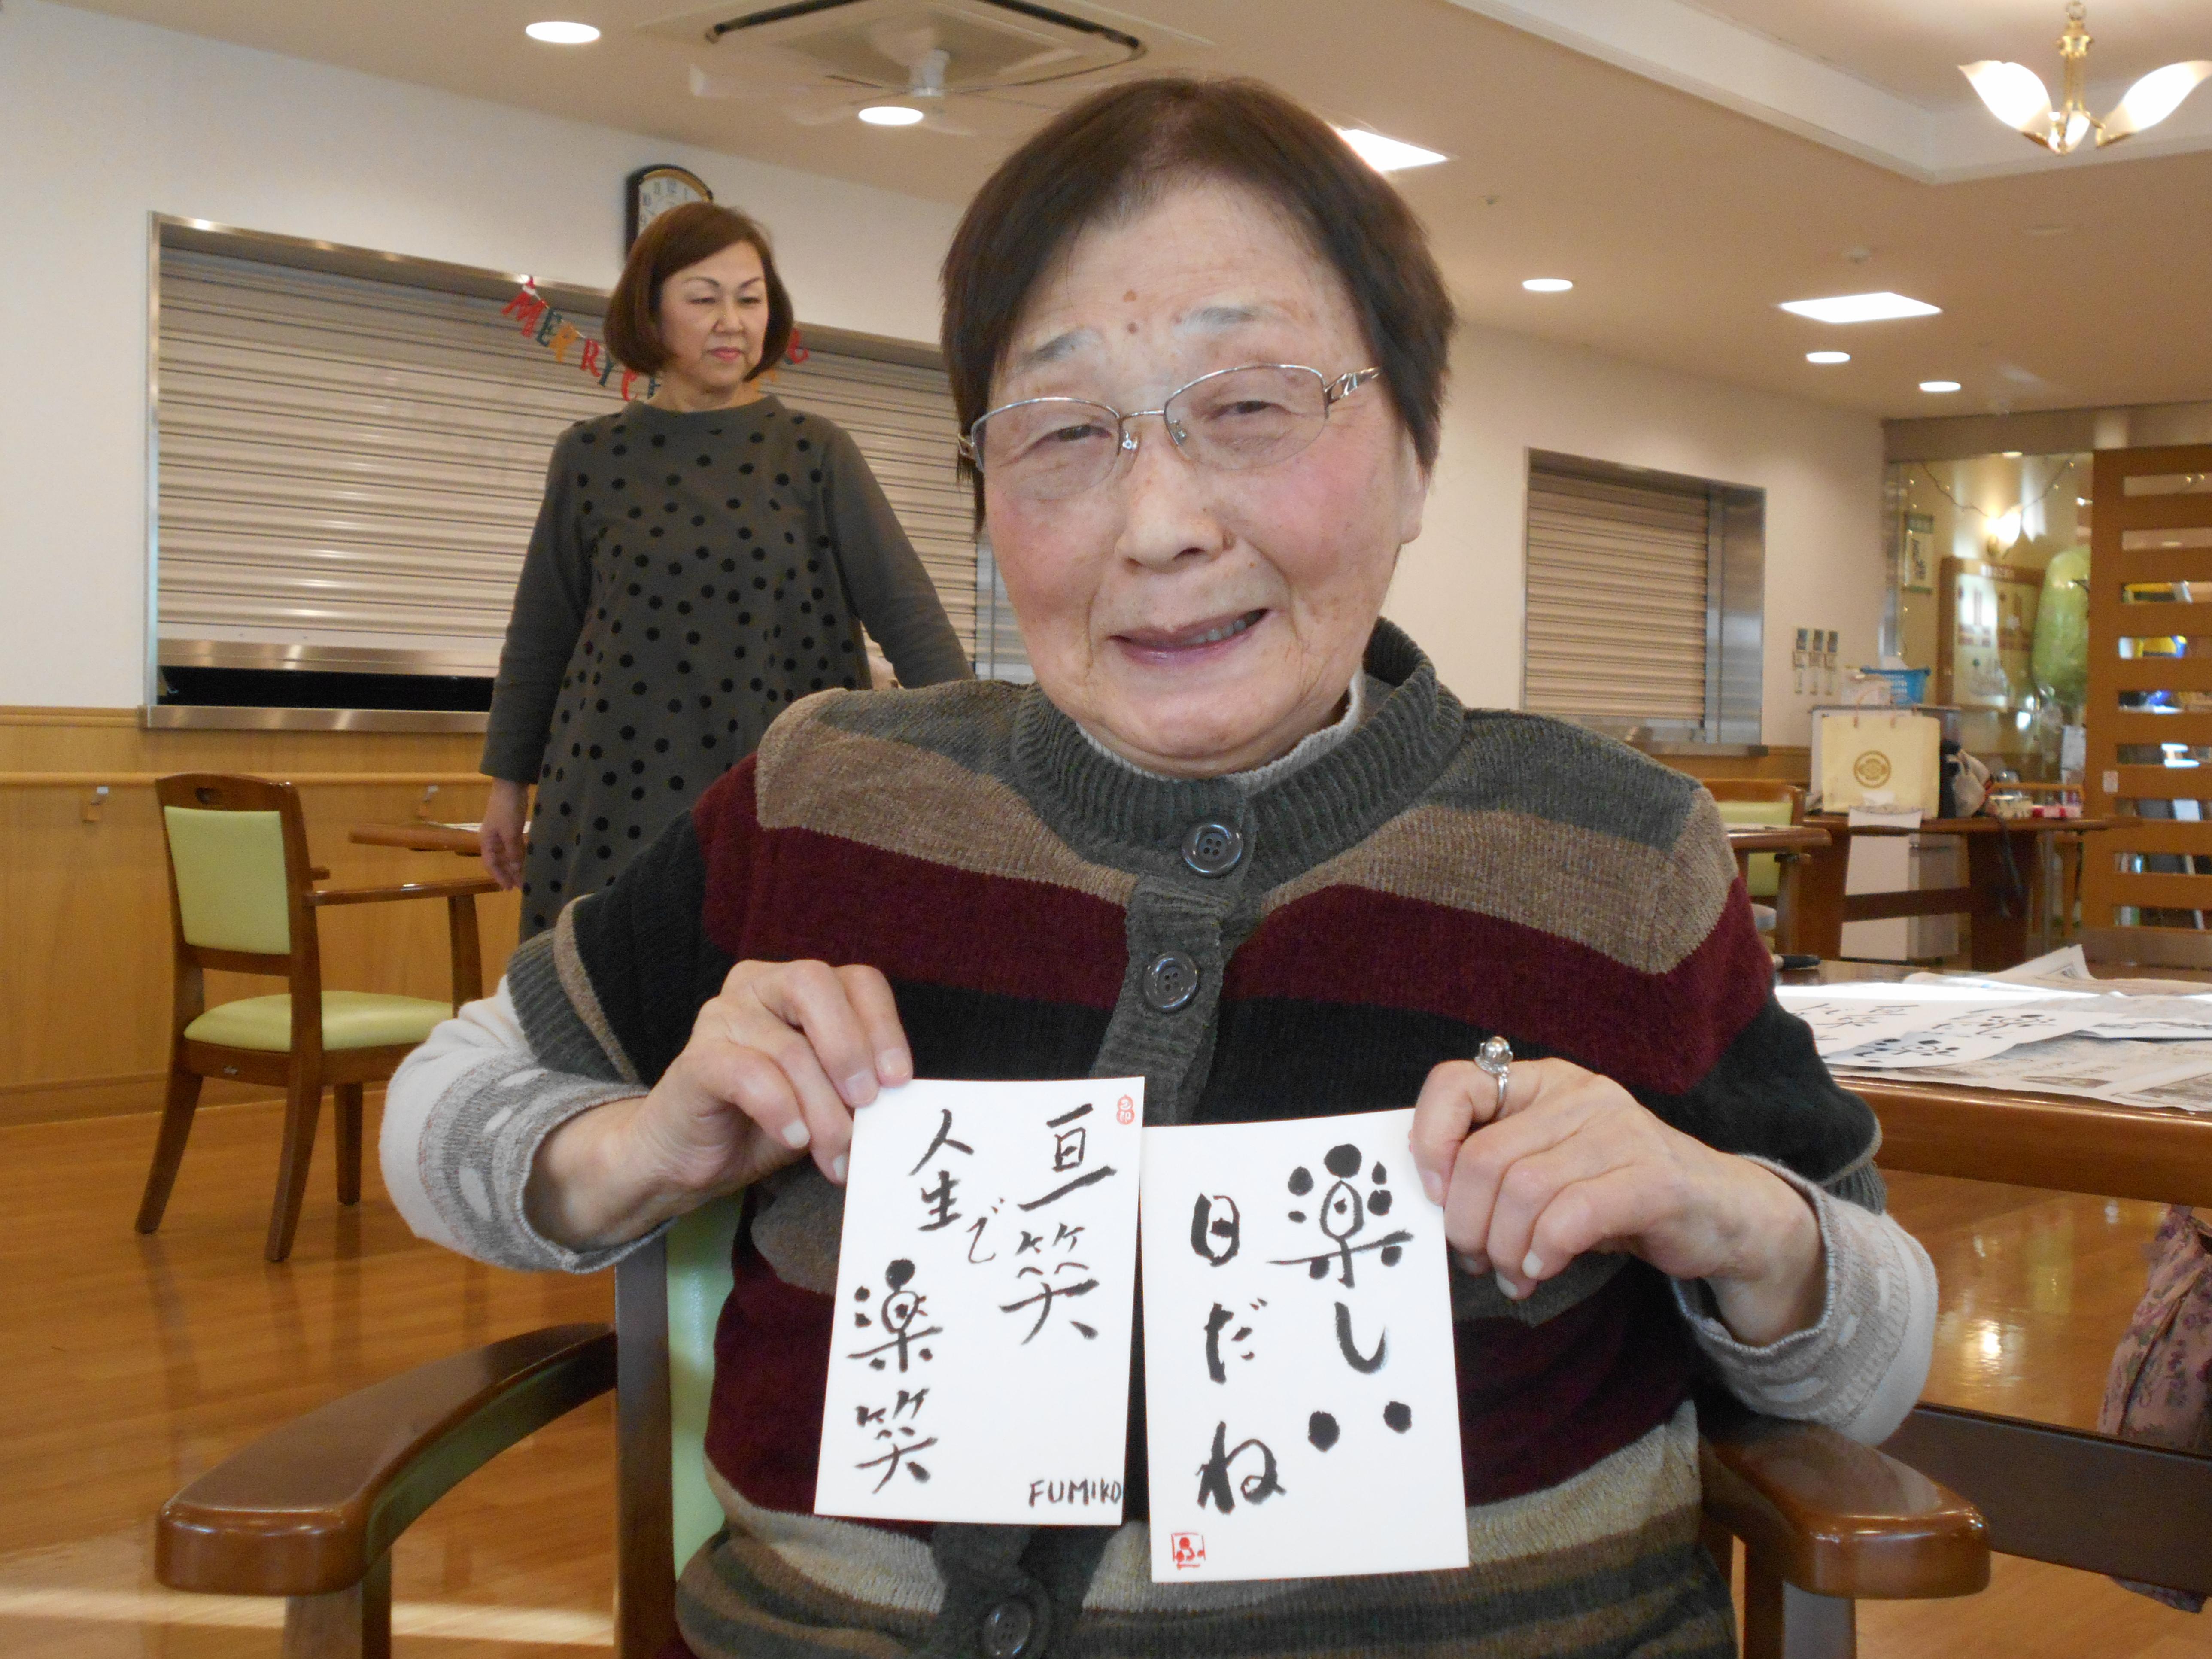 MERRY C
亘笑
人生で
楽笑
FUMIKO
楽しい
日だね